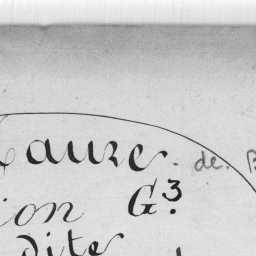 aure. de.
ion G.3
dite